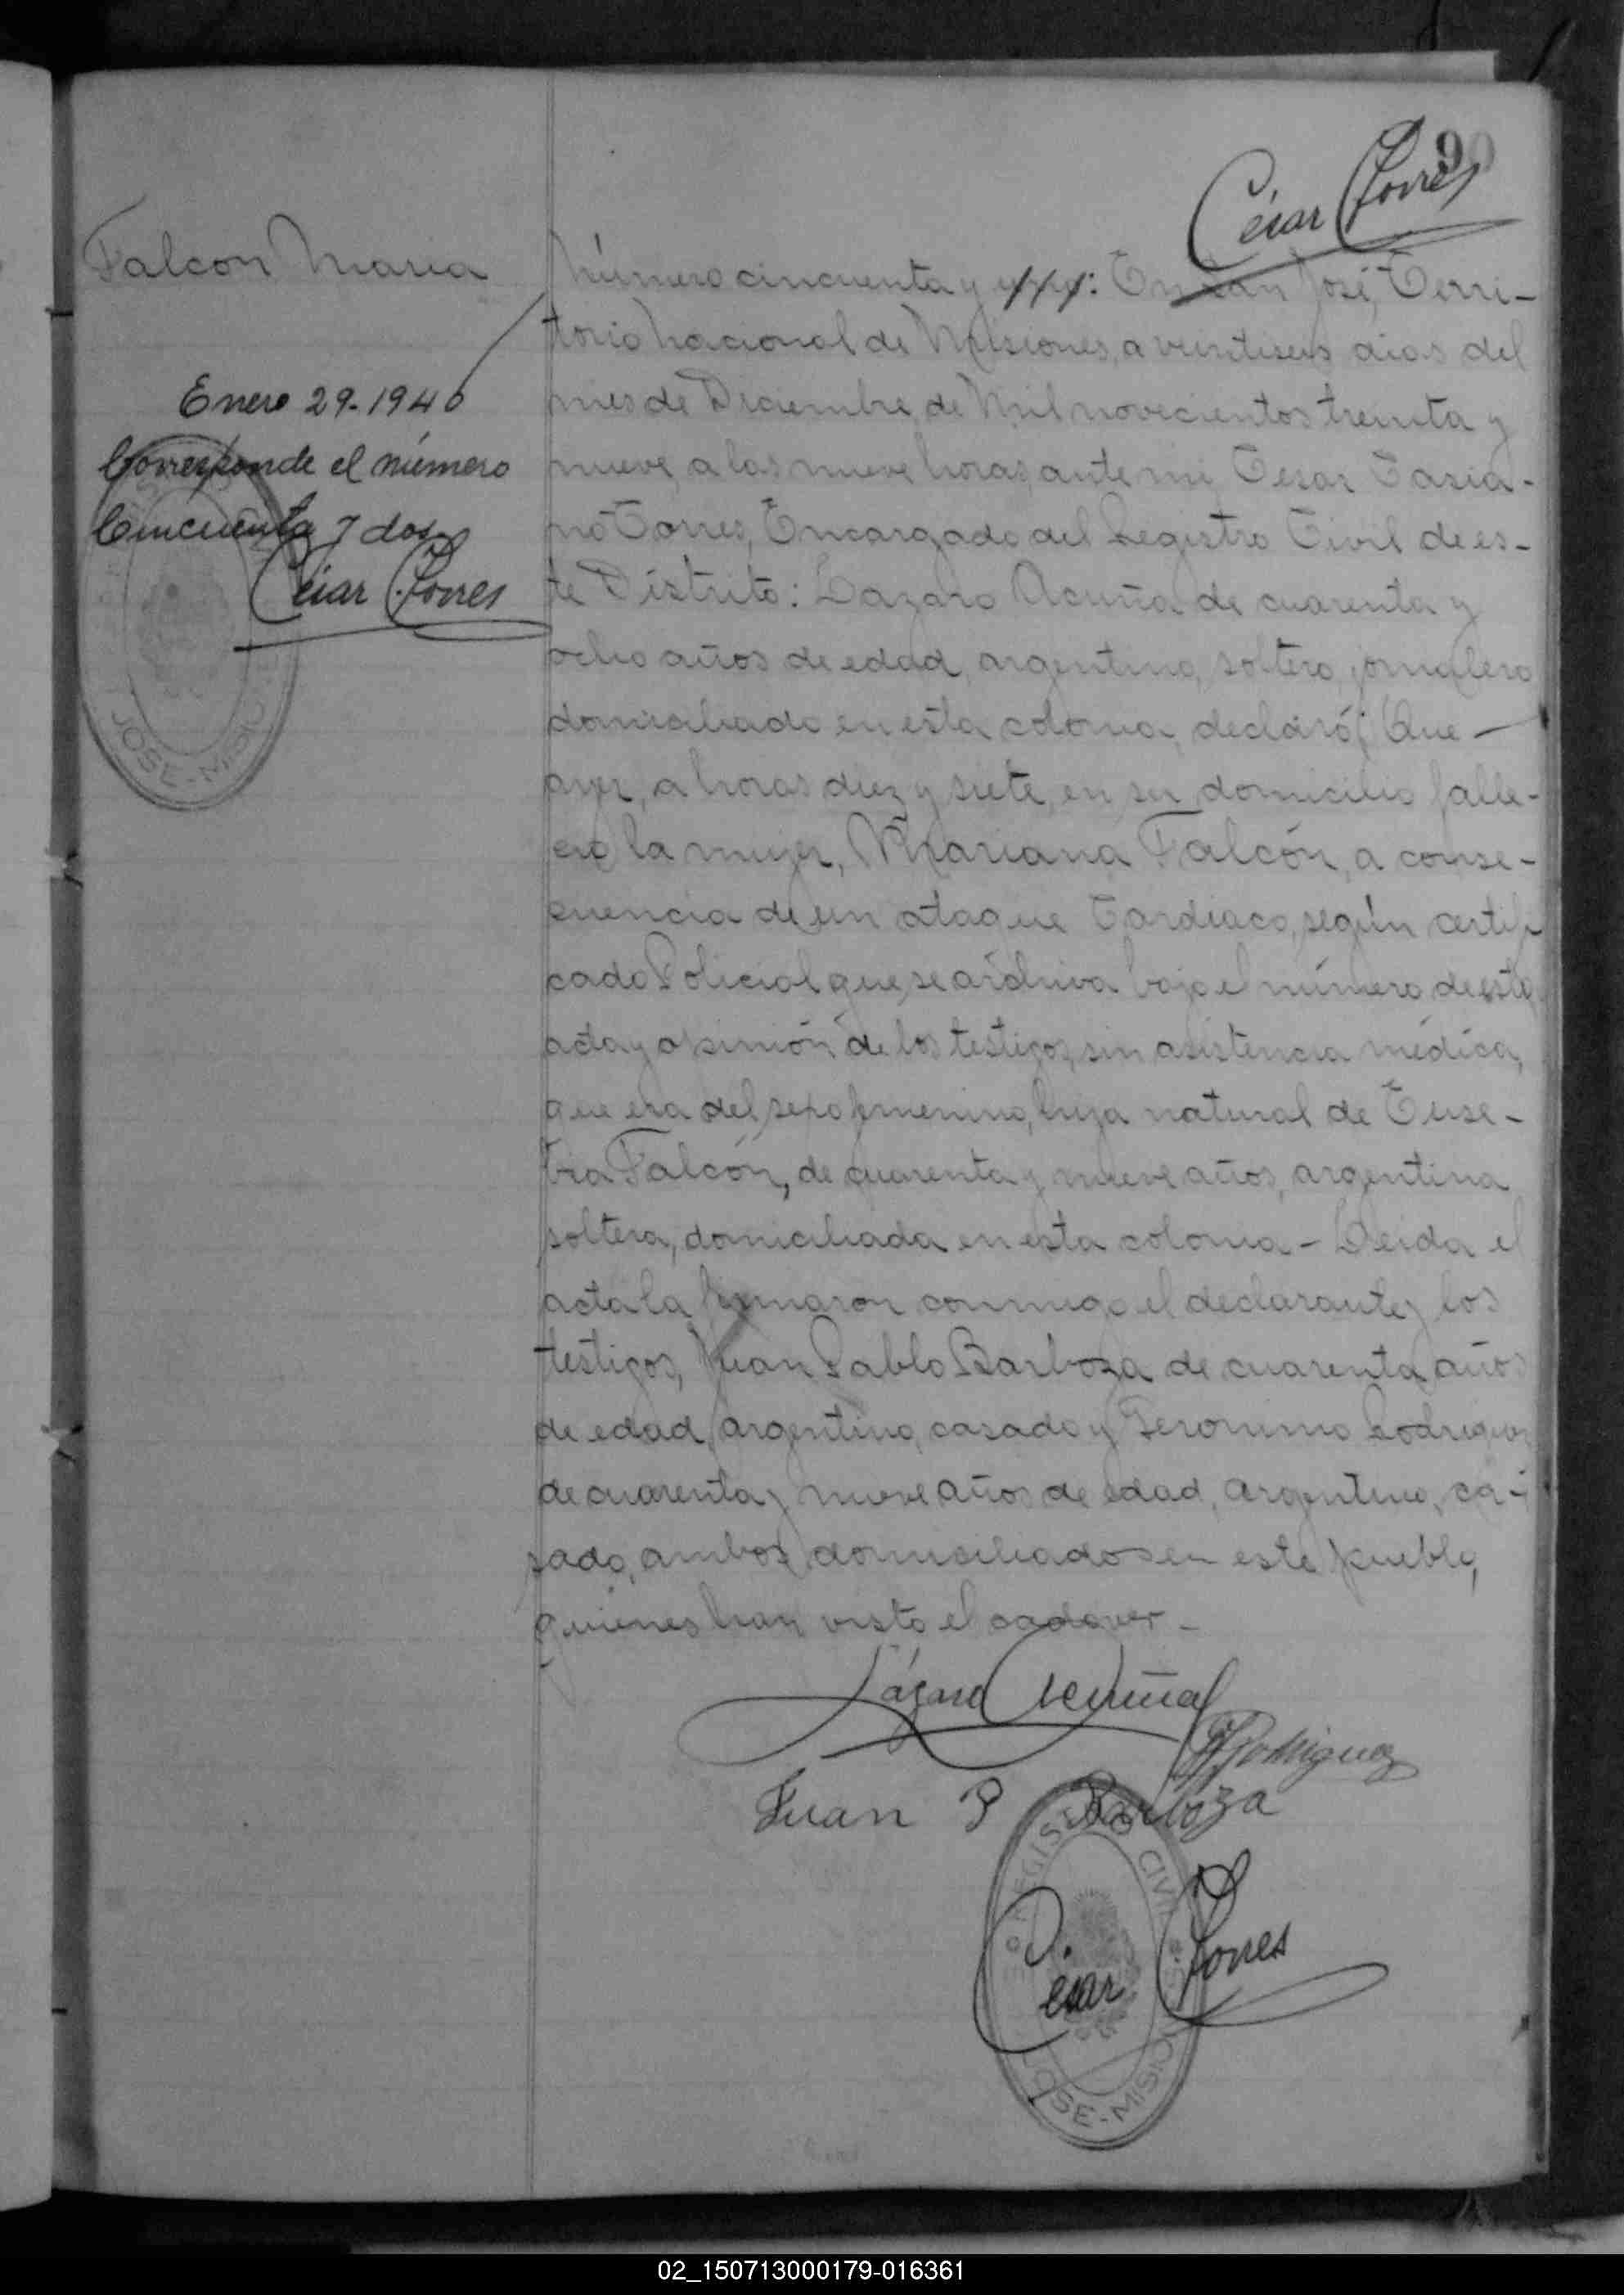 90
César Torres
Falcon Maria
Enero 29-1940
Corresponde el número
Cincuenta y dos
César Torres
JOSE-MISIO
Número cincuenta y : En San José, Terri-
torio Nacional de Misiones, a veintiseis dias del
mes de Diciembre de Mil novecientos treinta y
nueve, a las nueve horas, ante mi, Cesar Casia-
no Torres, Encargado del Registro Civil de es-
te Distrito: Lazaro Acuña de cuarenta y
ocho años de edad, argentino, soltero, jornalero
domiciliado en esta colonia, declaró: Que —
ayer, a horas diez y siete, en su domicilio falle-
ció la mujer, Mariana Falcón, a conse-
cuencia de un ataque Cardiaco, según certifi
cado Policial que se archiva bajo el número de esta
acta y opinión de los testigos, sin asistencia médica,
que era del sexo femenino, hija natural de Euse-
bia Falcón, de cuarenta y nueve años, argentina
soltera, domiciliada en esta colonia - Leida el
acta la firmaron conmigo el declarante y los
testigos, Juan Pablo Barboza de cuarenta años
de edad, argentino, casado y Geronimo Rodriguez
de cuarenta y nueve años de edad, argentino, ca-
sado, ambos domiciliados en este pueblo,
quienes han visto el cadaver -
Lázaro Acuña
Rodriguez
Juan P Barboza
REGISTRO CIVIL
César Torres
JOSE-MISIO
02_150713000179-016361